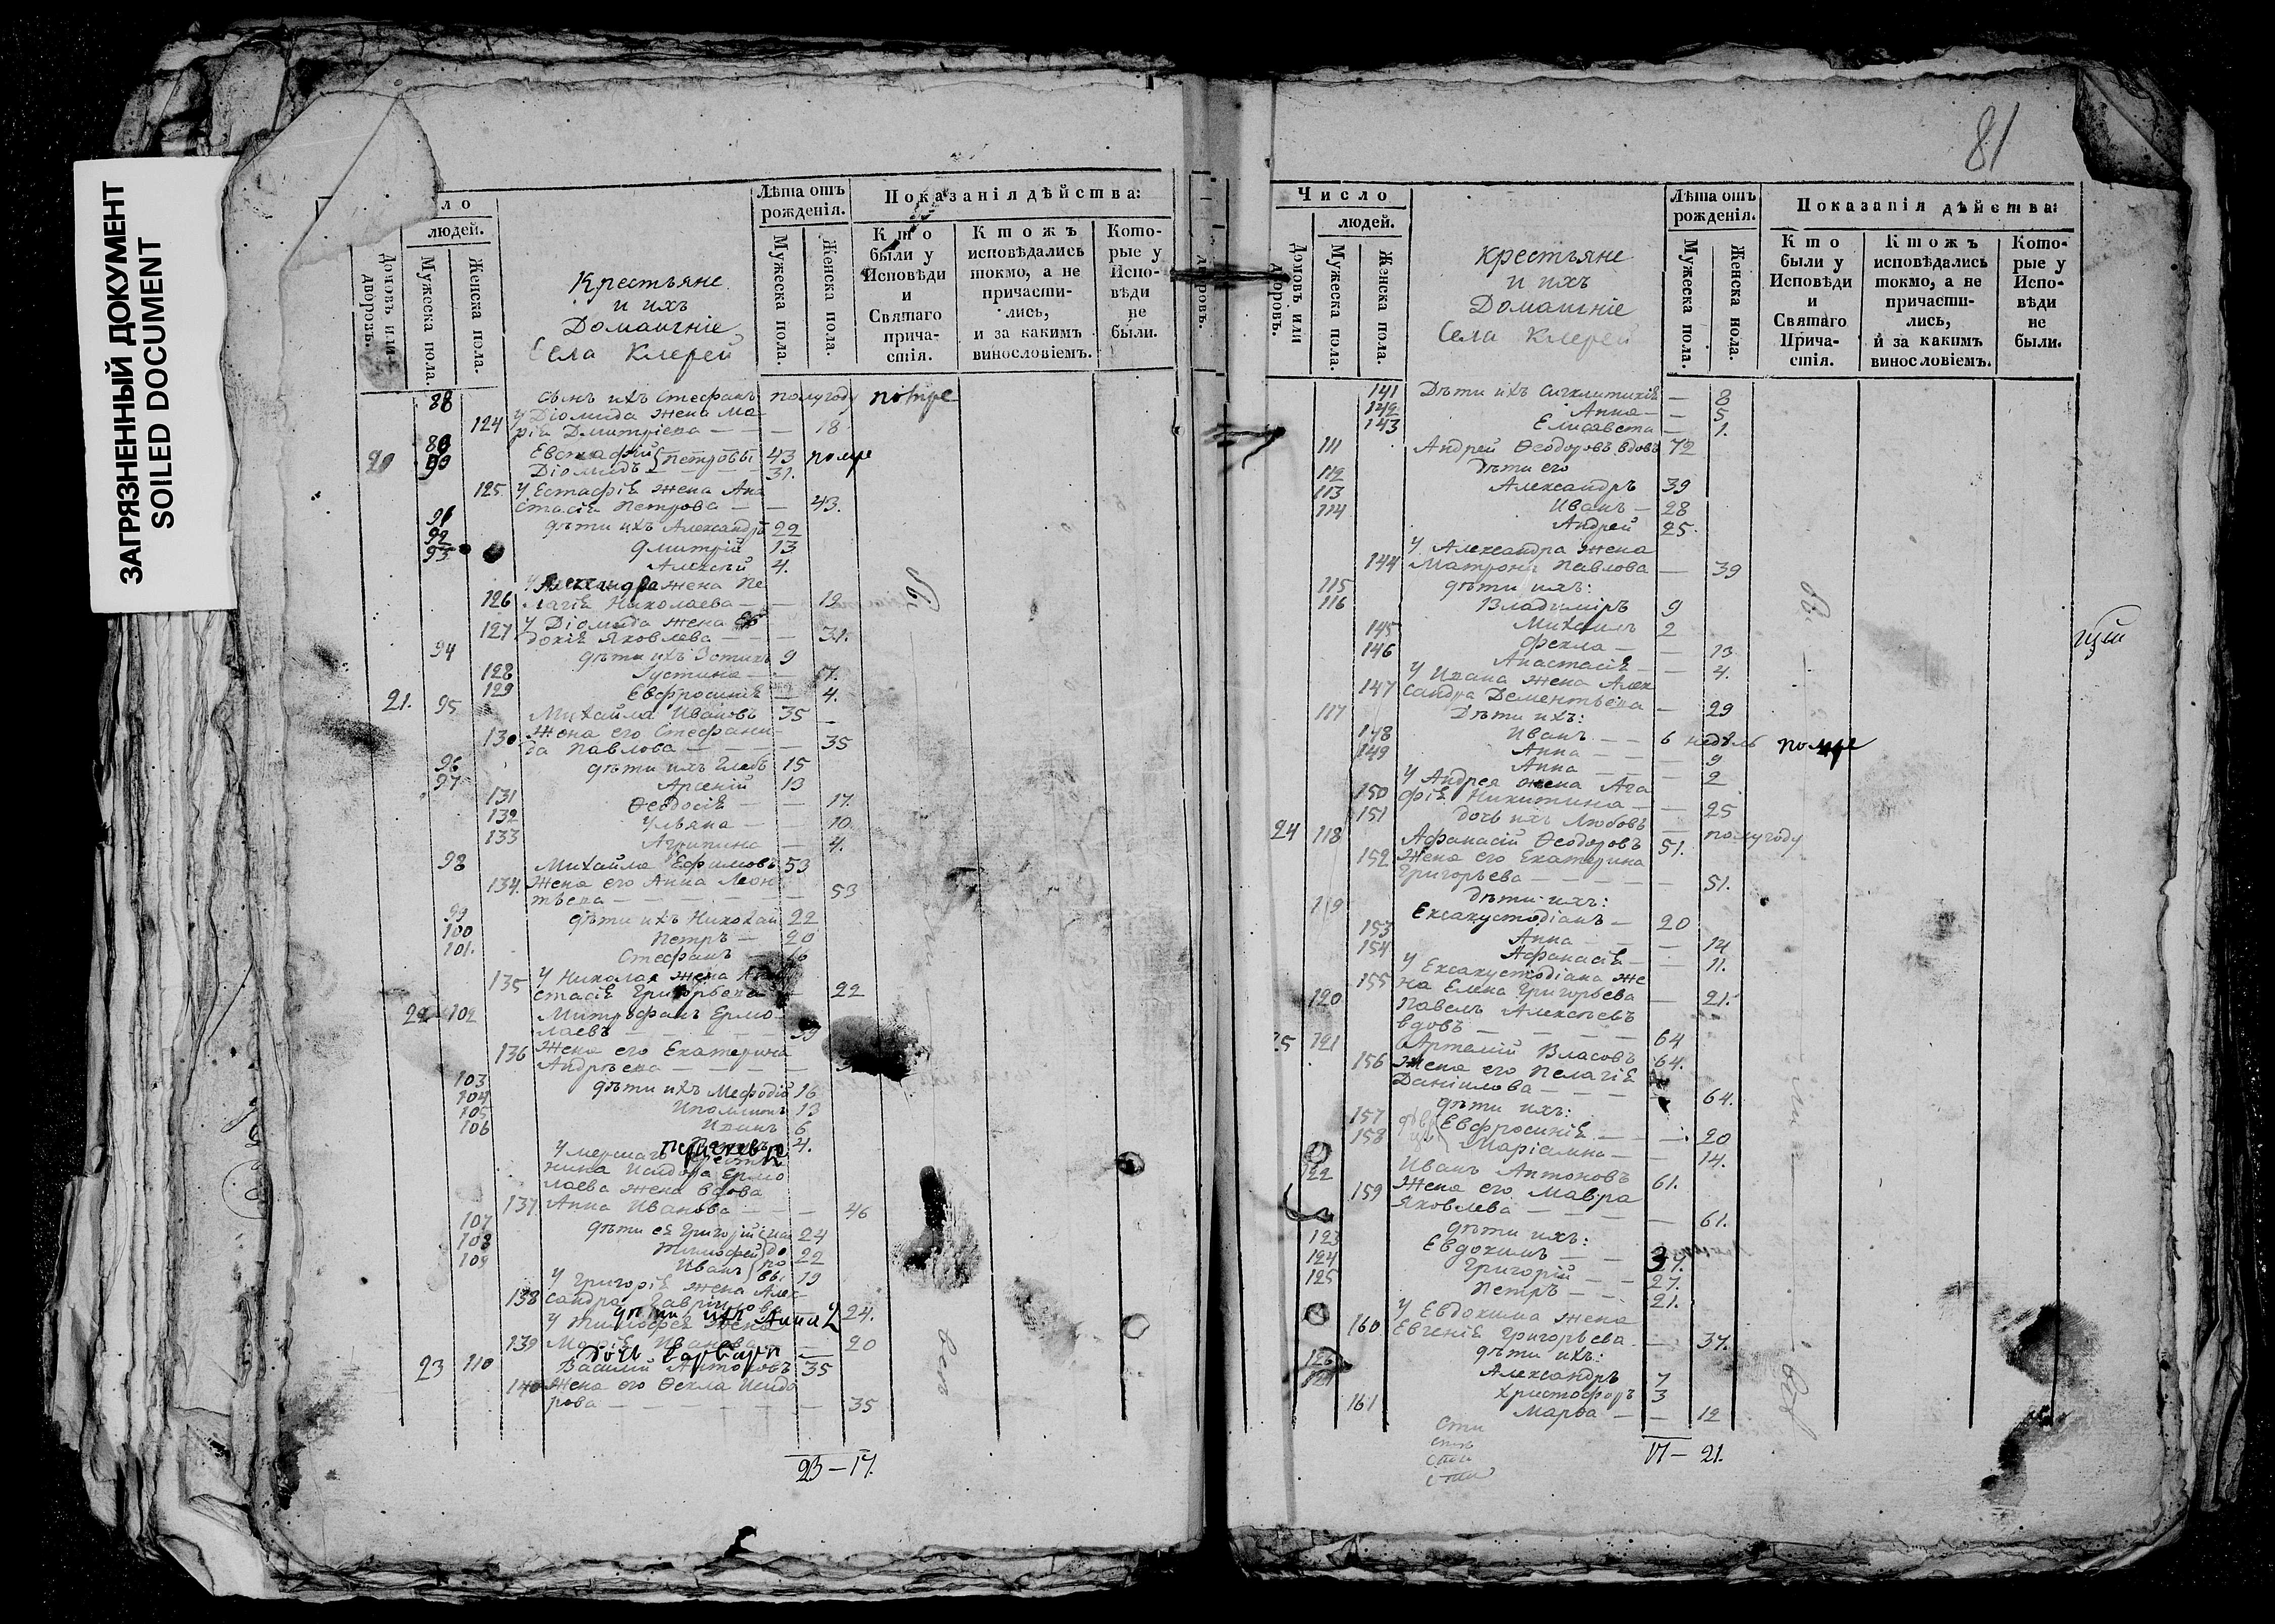 ЗАГРЯЗНЕННЫЙ ДОКУМЕНТ
SOILED DOCUMENT
ло
людей.
Домовъ или дворовъ.
Мужеска пола.
Женска пола.
Крестьяне
и ихъ
Домашніе
Села Клерей
Лѣта отъ
рожденія.
Мужеска пола.
Женска пола.
Показанія дѣйства:
Кто
были у
Исповѣди
и
Святаго
прича-
стія.
Ктожъ
исповѣдались
токмо, а не
причасти-
лись,
и за какимъ
винословіемъ.
Кото-
рые у
Испо-
вѣди
не
были.
88 сынъ ихъ Стефанъ полугоду помре
У Діомида жена Ма-
124 рія Дмитріева — — 18
89 Евстафій Петровы 43 помре
20 90 Діомидъ 31.
125. У Естафіѣ жена Ана
стасіѣ Петрова — — 43.
91 дѣти ихъ Александръ 22
92 Дмитрій 13
93 Алексѣй 4.
У Александра жена Пе
126 лагіѣ Николаева — — 19
127 У Діомида жена Ев
докіѣ Яковлева — — 31.
94 дѣти ихъ 9
128 Густина — 7.
129 Евфросиніѣ — 4.
21. 95 Михайла Ивановъ 35 —
130 Жена его Стефани-
да Павлова — — 35
96 дѣти ихъ Глебъ 15
97 Арсеній 13
131 Ѳеодосіѣ — — 17.
132 Ульяна — — 10.
133 Агрипина — 4.
98 Михайла Ефимовъ 53
134. Жена его Анна Леон
тьева — — — 53
99 дѣти ихъ Николай 22
100 Петръ — 20
101. Стефанъ —
135 У Николая жена Ана
стасіѣ Григорьева — 22
22 102 Митрофанъ Ермо-
лаевъ — — — 39
136 Жена его Екатерина
Андрѣева — — —
103 дѣти ихъ Мефодій 16
104 13
105 Иванъ 6
106 4.
Умершаго
нина Исидора Ермо
лаева жена вдова
137 Анна Иванова — — 46
107 дѣти еѣ Григорій 24
108 Тимофей 22
109 Иванъ 19
У Григоріѣ жена Алек-
138 сандра Гаврилова 24.
дѣти ихъ Анна 2
У Тимофеѣ жена
139 Маріѣ Иванова — 20
дочь Варвара
23 110 Василій Антоновъ 35
140 Жена его Ѳекла Исидо
рова — — — — — 35
23 — 17.
81
Число
людей.
Домовъ или дворовъ.
Мужеска пола.
Женска пола.
Крестьяне
и ихъ
Домашніе
Села Клерей
Лѣта отъ
рожденія.
Мужеска пола.
Женска пола.
Показанія дѣйства:
Кто
были у
Исповѣди
и
Святаго
Прича-
стія.
Ктожъ
исповѣдались
токмо, а не
причасти-
лись,
и за какимъ
винословіемъ.
Кото-
рые у
Испо-
вѣди
не
были.
141 Дѣти ихъ Сигклитикіѣ — 8
142 Анна — — 5
143 Елисавета — 1.
111 Андрей Ѳеодоровъ вдовъ 72
112 дѣти его
113 Александръ 39
114 Иванъ — 28
Андрей 25.
У Александра жена
144 Матрона Павлова — 39
115 дѣти ихъ:
116 Владиміръ 9
145 Михаилъ 2
146 Фекла — — 13
Анастасіѣ — — 4.
У Ивана жена Алек
147 сандра Дементьева — 29
117 Дѣти ихъ:
148 Иванъ — — 6 недѣль помре
149 Анна — — — 9
Анна — — — 2
У Андрея жена Ага
150 фіѣ Никитина — — 25
151 дочь ихъ Любовь — полугоду
24 118 Афанасій Ѳеодоровъ 51.
152 Жена его Екатерина
Григорьева — — — — 51.
119 дѣти ихъ:
Ексакустодіанъ — 20
153 Анна — — — 14
154 Афанасіѣ — — 11.
У Ексакустодіана же
155 на Елена Григорьева — 21.
120 Павелъ Алексѣевъ
вдовъ — — — — 64
25 121 Артемій Власовъ 64.
156 Жена его Пелагіѣ
Даніилова — — — 64.
дѣти ихъ:
157 Евфросиніѣ — — 20
158 Маріамна — — 14.
122 Иванъ Антоновъ 61.
159 Жена его Мавра
Яковлева — — — — 61.
дѣти ихъ:
123 Евдокимъ — — 37.
124 Григорій — — 27.
125 Петръ — — 21.
У Евдокима жена
160 Евгеніѣ Григорьева — 37.
126 дѣти ихъ:
127 Александръ 7
Христофоръ 3
161 Марѳа — — 12
17 — 21.